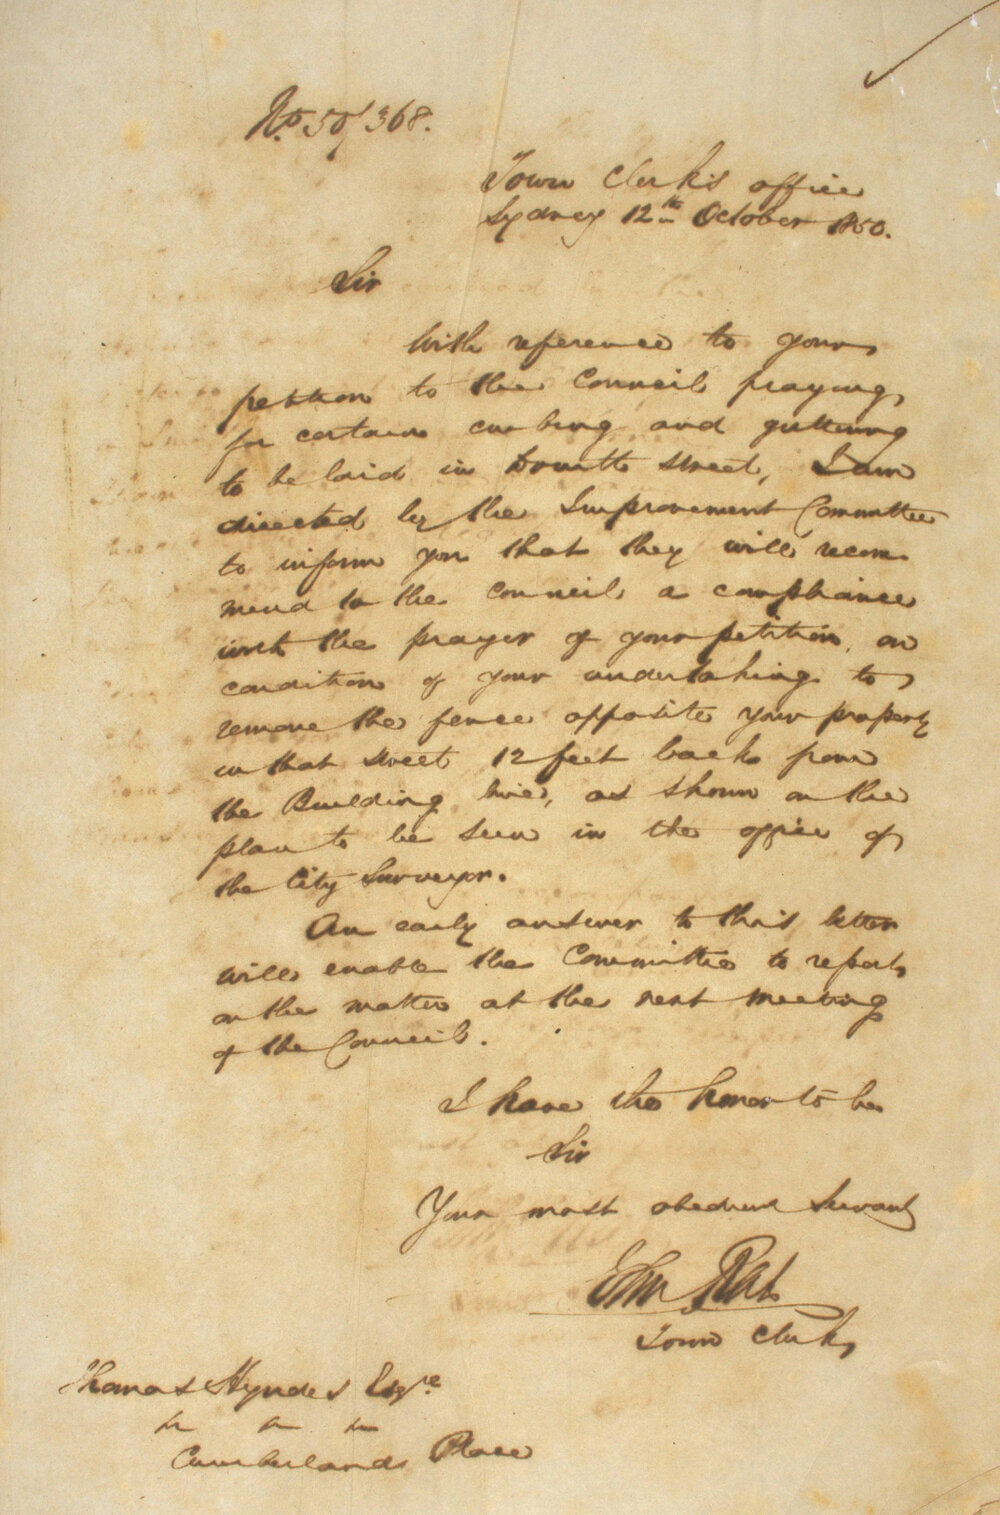 No. 50/368.
Town Clerk's office
Sydney 12th October 1850.
Sir
With reference to your
petition to the Council praying
for certain curbing and guttering
to be laid in Dowitts Street, I am
directed by the Improvement Committee
to inform you that they will recom-
mend to the Council a compliance
with the prayer of your petition, on
condition of your undertaking to
remove the fence opposite your property
in that street 12 feet back from
the Building line, as shown on the
plan to be seen in the office of
the City Surveyor.
An early answer to this letter
will enable the Committee to report
on the matter at the next meeting
of the Council.
I have the honor to be
Sir
Your most obedient Servant
Town Clerk
Thomas Hyndes Esqre
Cumberland Place